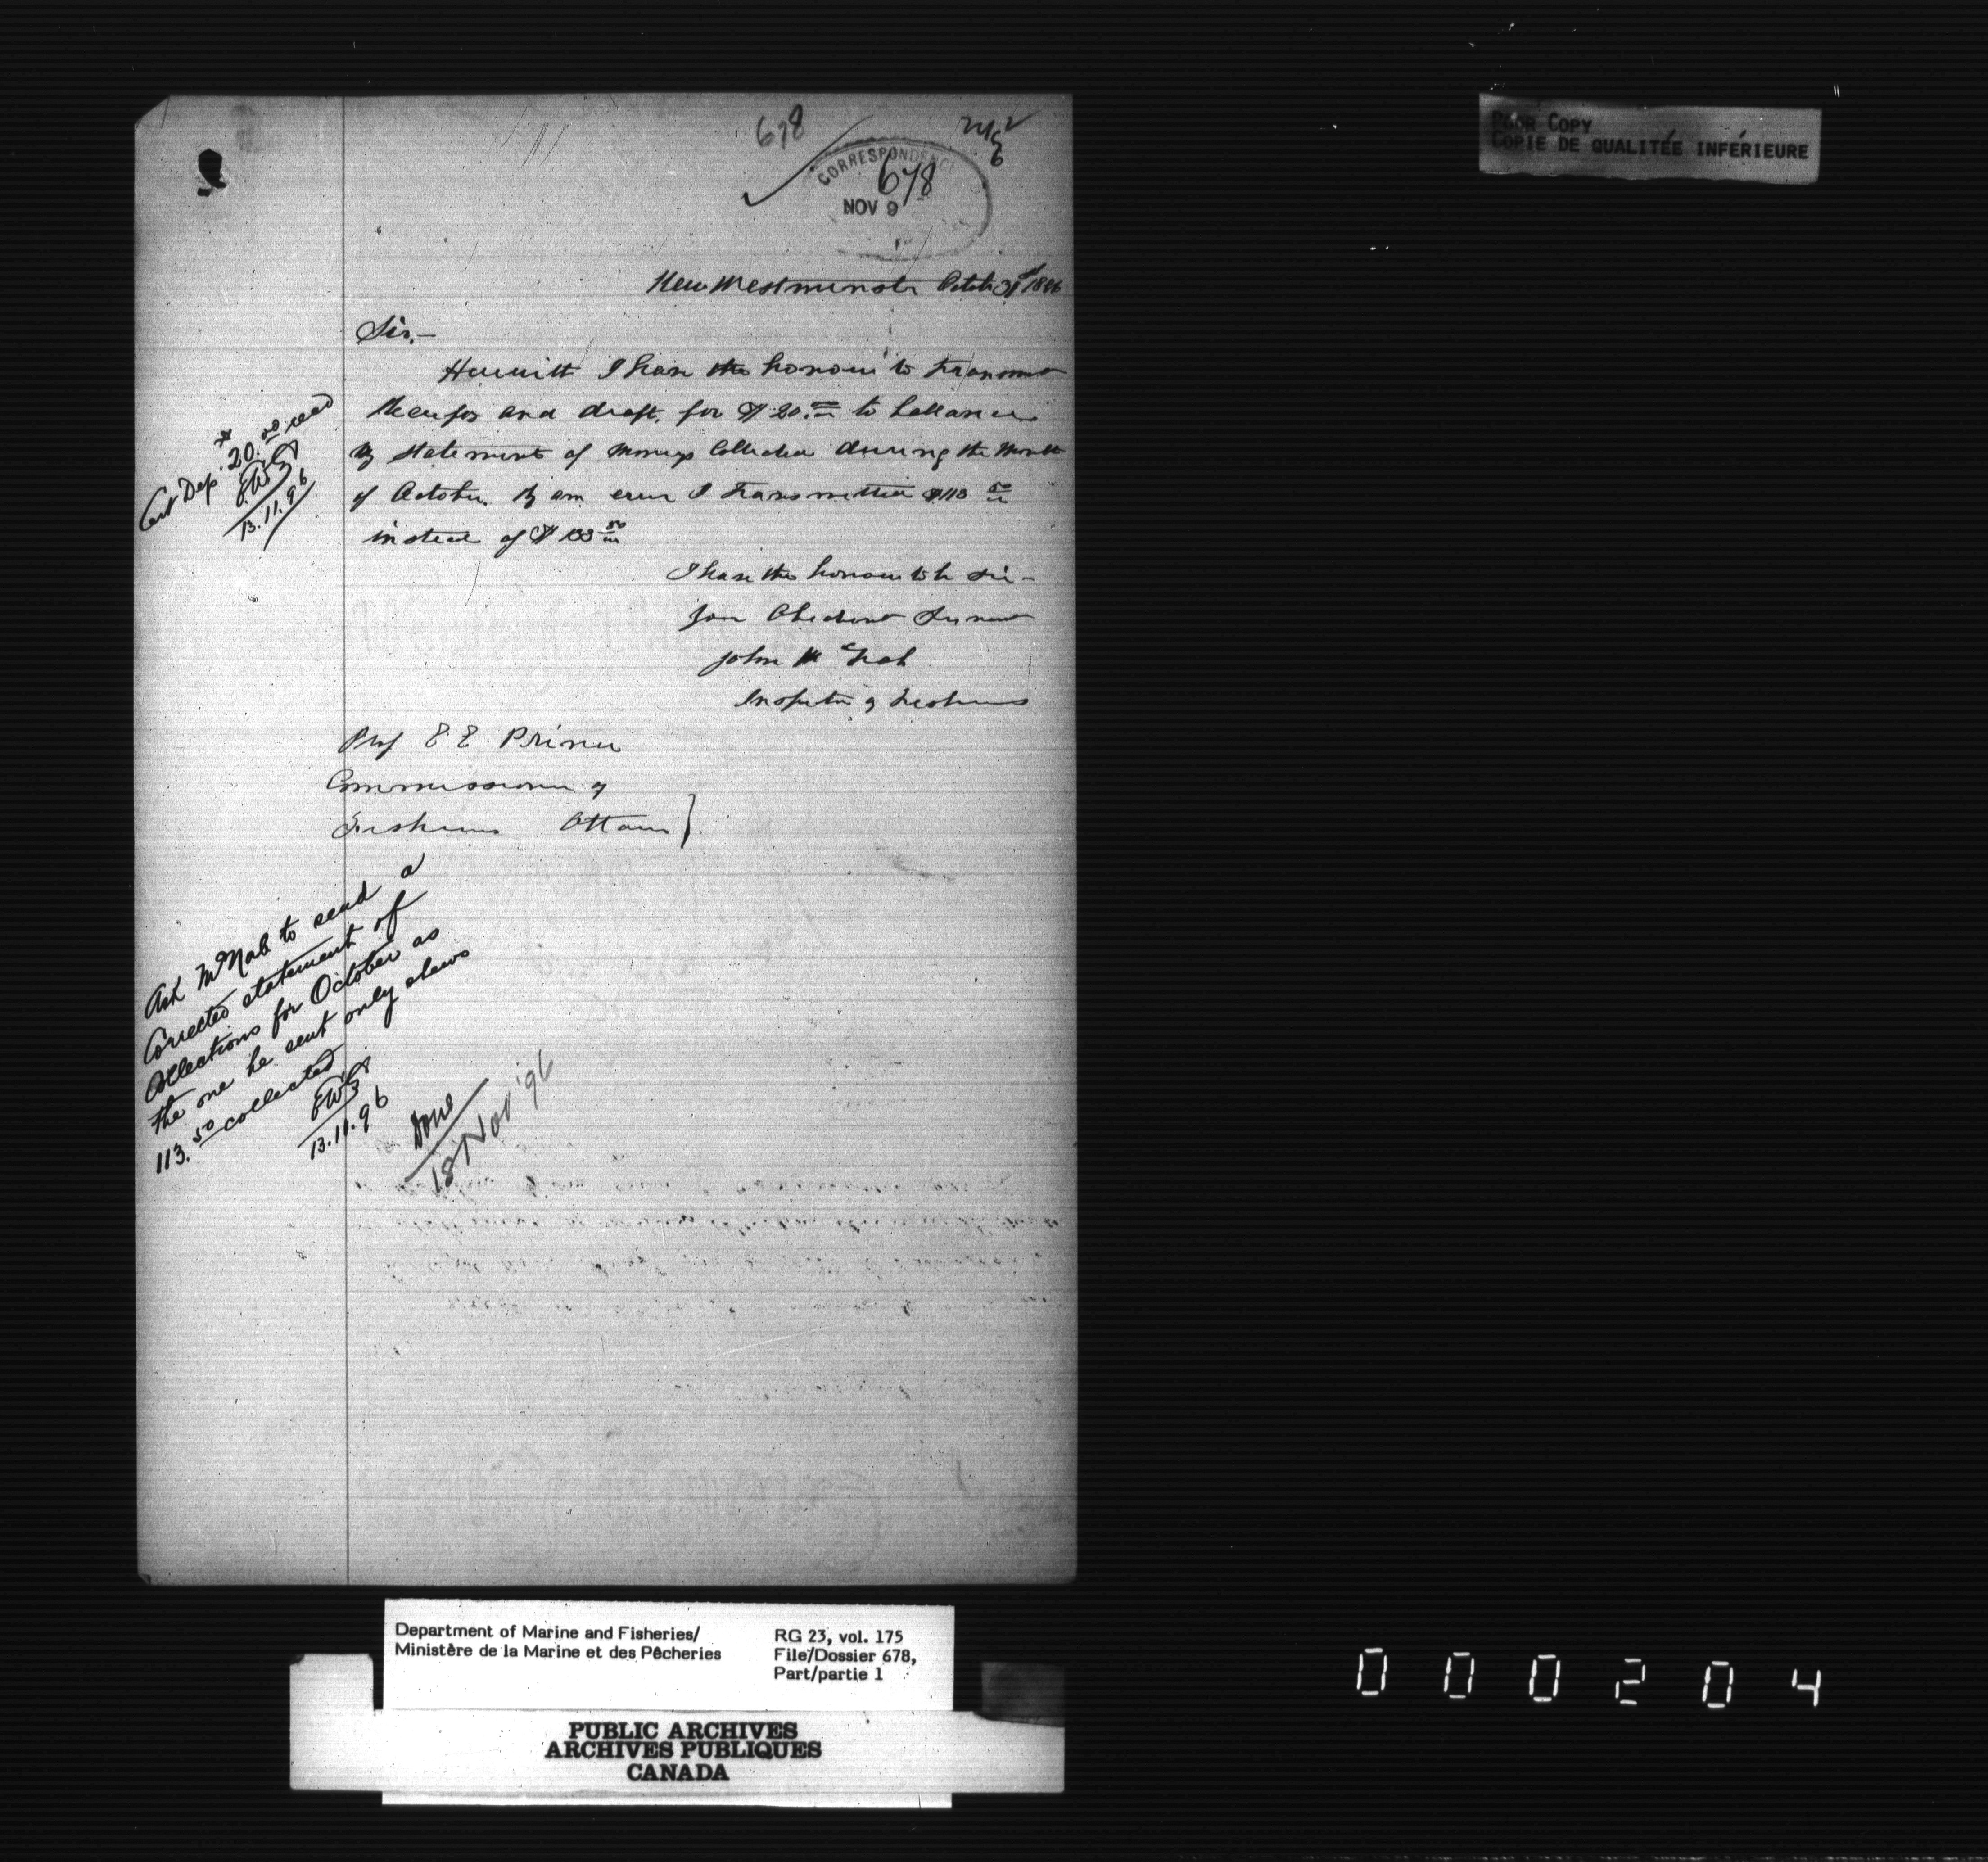 678
CORRESPONDENCE
678
NOV 9
New Westminster Octob 31st 1896
Sir,—
Herewith I have the honour to transmit
Receipt and draft, for $20.00 to ballance
My statement of moneys Collected during the Month
of October. By an error I transmitted $113 50
instead of $133 50
I have the honour to be Sir —
Your Obedient Servant
John McNab
Inspector of Fisheries
Prof E E Prince
Commissioner of
Fisheries Ottawa }
Cert Dep $20.00 recd
13.11.96
Ask McNab to send a
Corrected statement of
Collections for October as
the one he sent only shews
113.50 collected
13.11.96
Done
18 Nov '96
POOR COPY
COPIE DE QUALITÉE INFÉRIEURE
Department of Marine and Fisheries/
Ministère de la Marine et des Pêcheries
RG 23, vol. 175
File/Dossier 678,
Part/partie 1
PUBLIC ARCHIVES
ARCHIVES PUBLIQUES
CANADA
000204